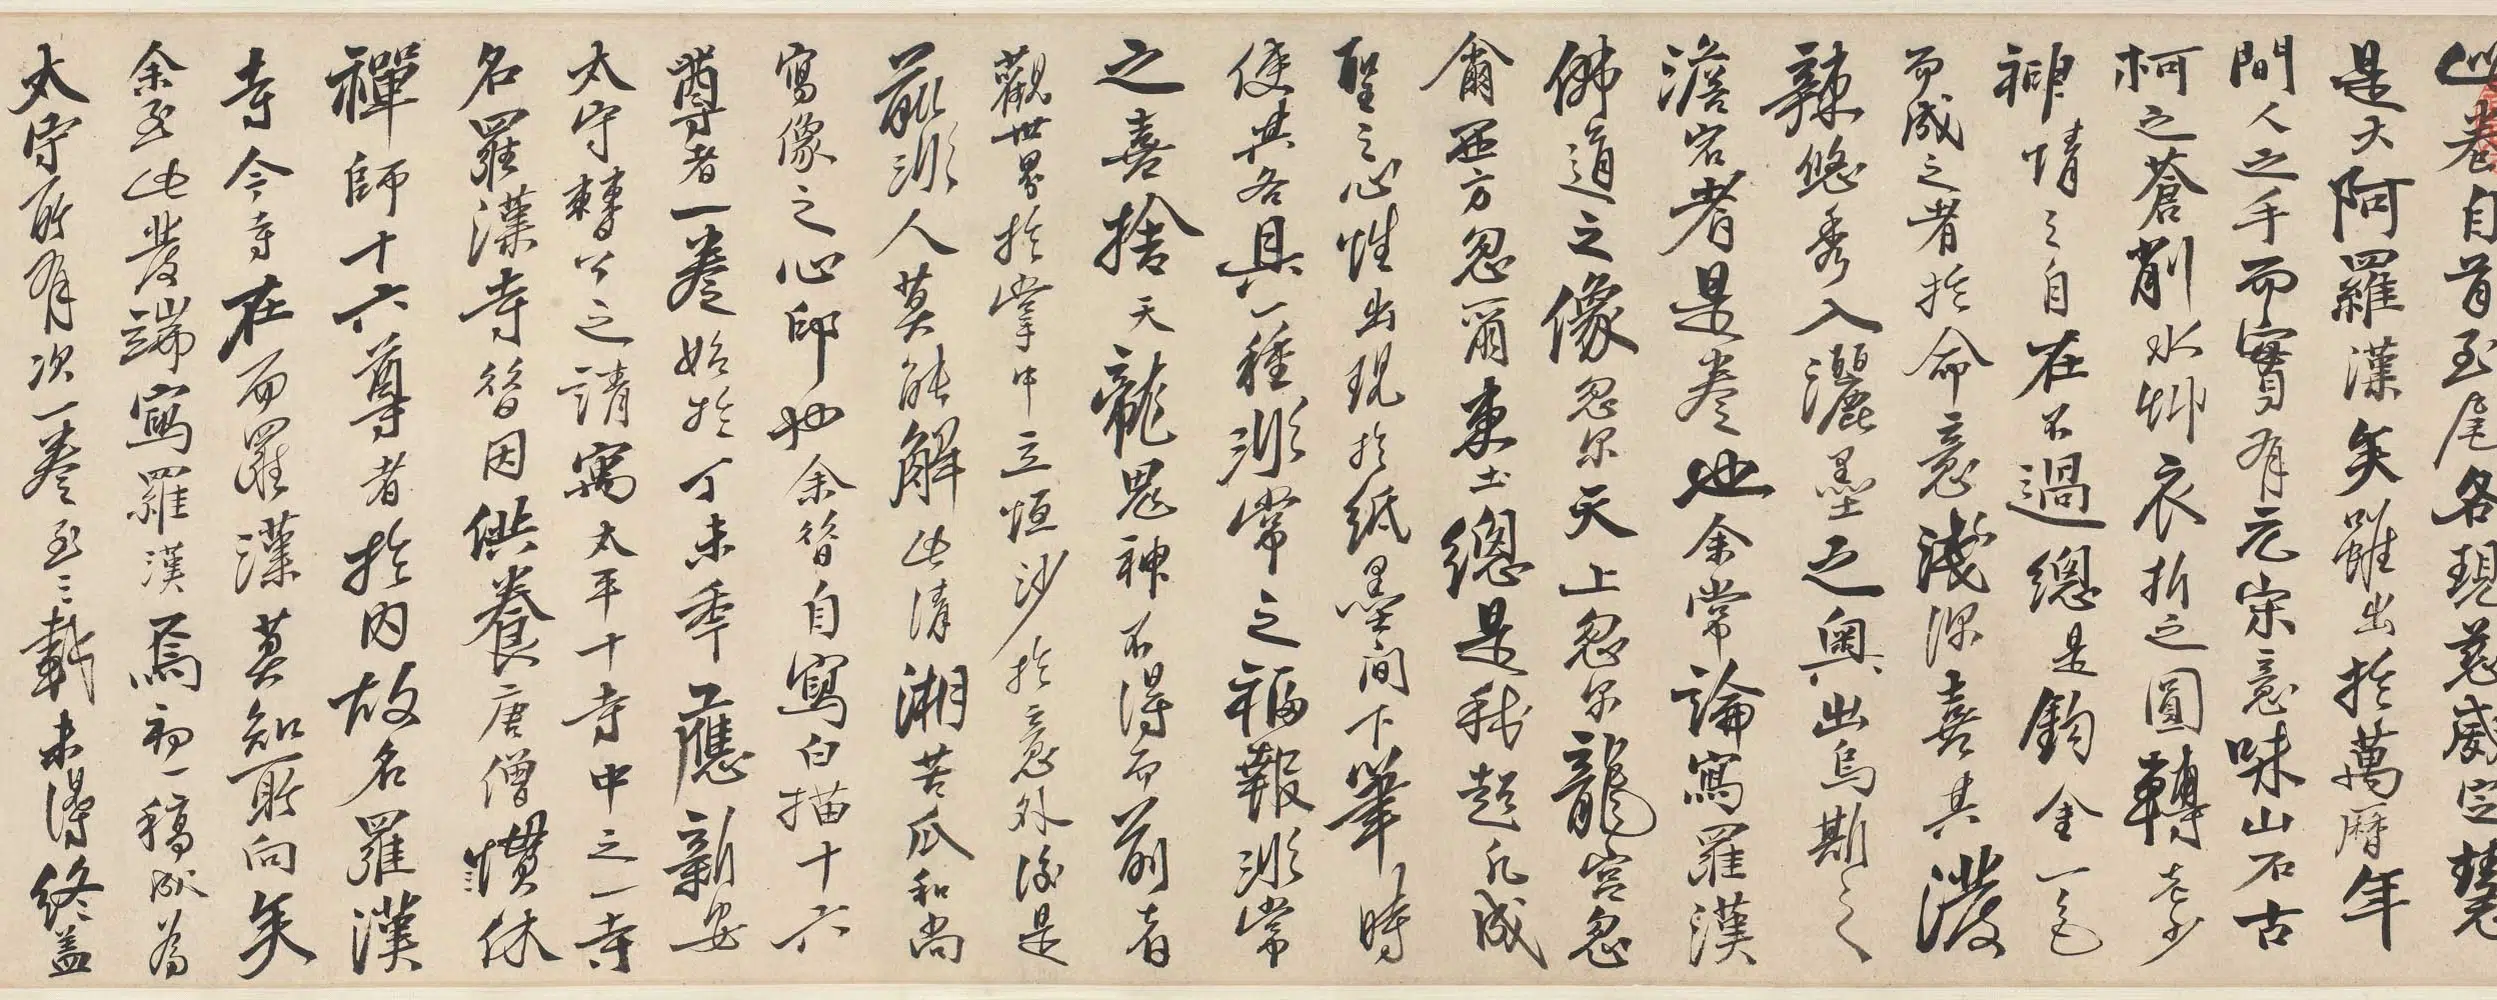 此卷自首至尾各現慈威定慧
是大阿羅漢矣雖出於萬曆年
間人之手而實有元宋意味山石古
柯之蒼削水艸衣折之圓轉老少
神情之自在不過總是鉤金一色
而成之者於命意淺深喜其潑
辣悠秀入灑墨之奧出烏斯之
澹宕者是卷也余常論寫羅漢
佛道之像忽尔天上忽尔龍宮忽
爾西方忽爾東土總是我超凡成
聖之心性出現於紙墨間下筆時
使其各具一種非常之福報非常
之喜捨天龍鬼神不得而前者
觀世界於掌中立恒沙於意外後是
前非人莫能解此清湘苦瓜和尚
寫像之心印也余昔自寫白描十六
尊者一卷始於丁未年應新安
太守曹公之請寓太平十寺中之一寺
名羅漢寺昔因供養唐僧慣休
禪師十六尊者於內故名羅漢
寺今寺在而羅漢莫知所向矣
余至此發端寫羅漢焉初一稿成為
太守所有次一卷至三載未得終蓋